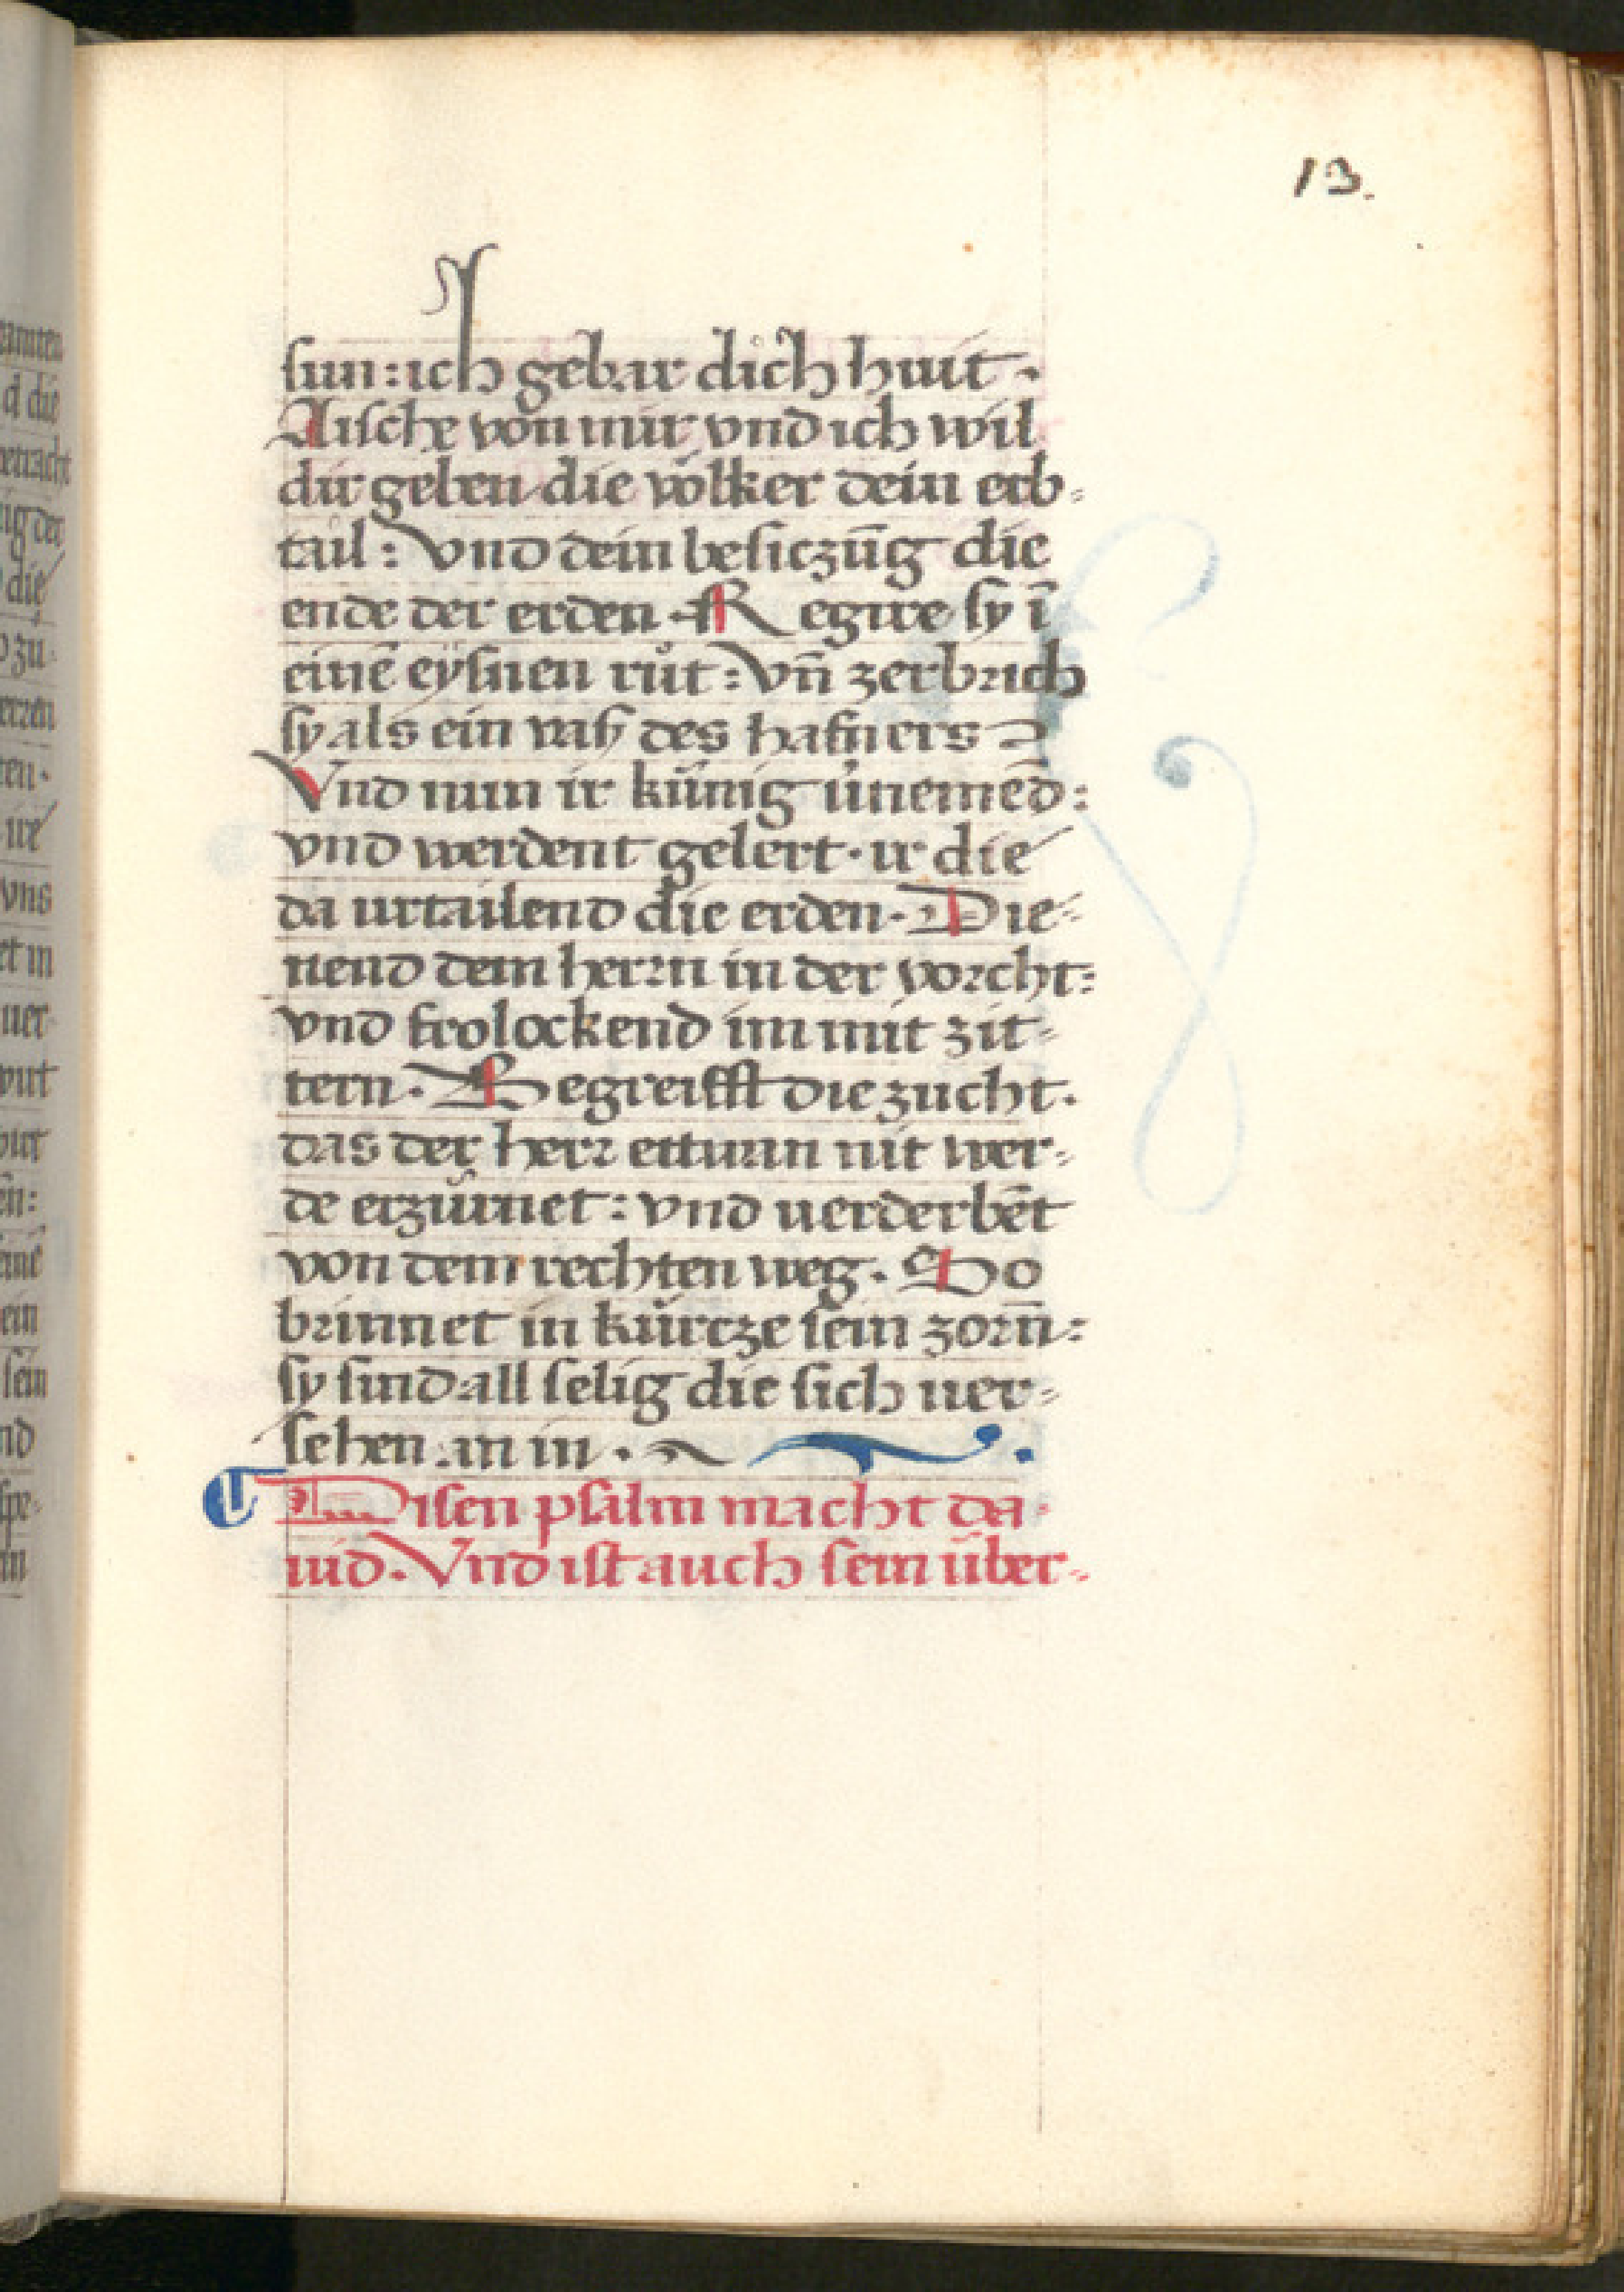 13.
sun: ich gebar dich huit.
Aische von mir vnd ich wil
dir geben die völker dein erb=
tail: vnd dein besiczūg die
ende der erden. Regire sy ī
einē eysnen růt: vn̄ zerbrich
sy als ein vasß des hafners
Vnd nun ir künig v̇nemēd:
vnd werdent gelert. ir die
da urtailend die erden. Die=
nend dem herrn in der vorcht:
vnd frolockend im mit zit=
tern. Begreifft die zucht.
das der herr ettwan nit wer=
de erzürnet: vnd uerderbēt
von dem rechten weg. So
brinnet in kürcze sein zorn̄:
sy sind all selig die sich uer=
sehen an in.
Disen psalm macht da=
uid. Vnd ist auch sein über=